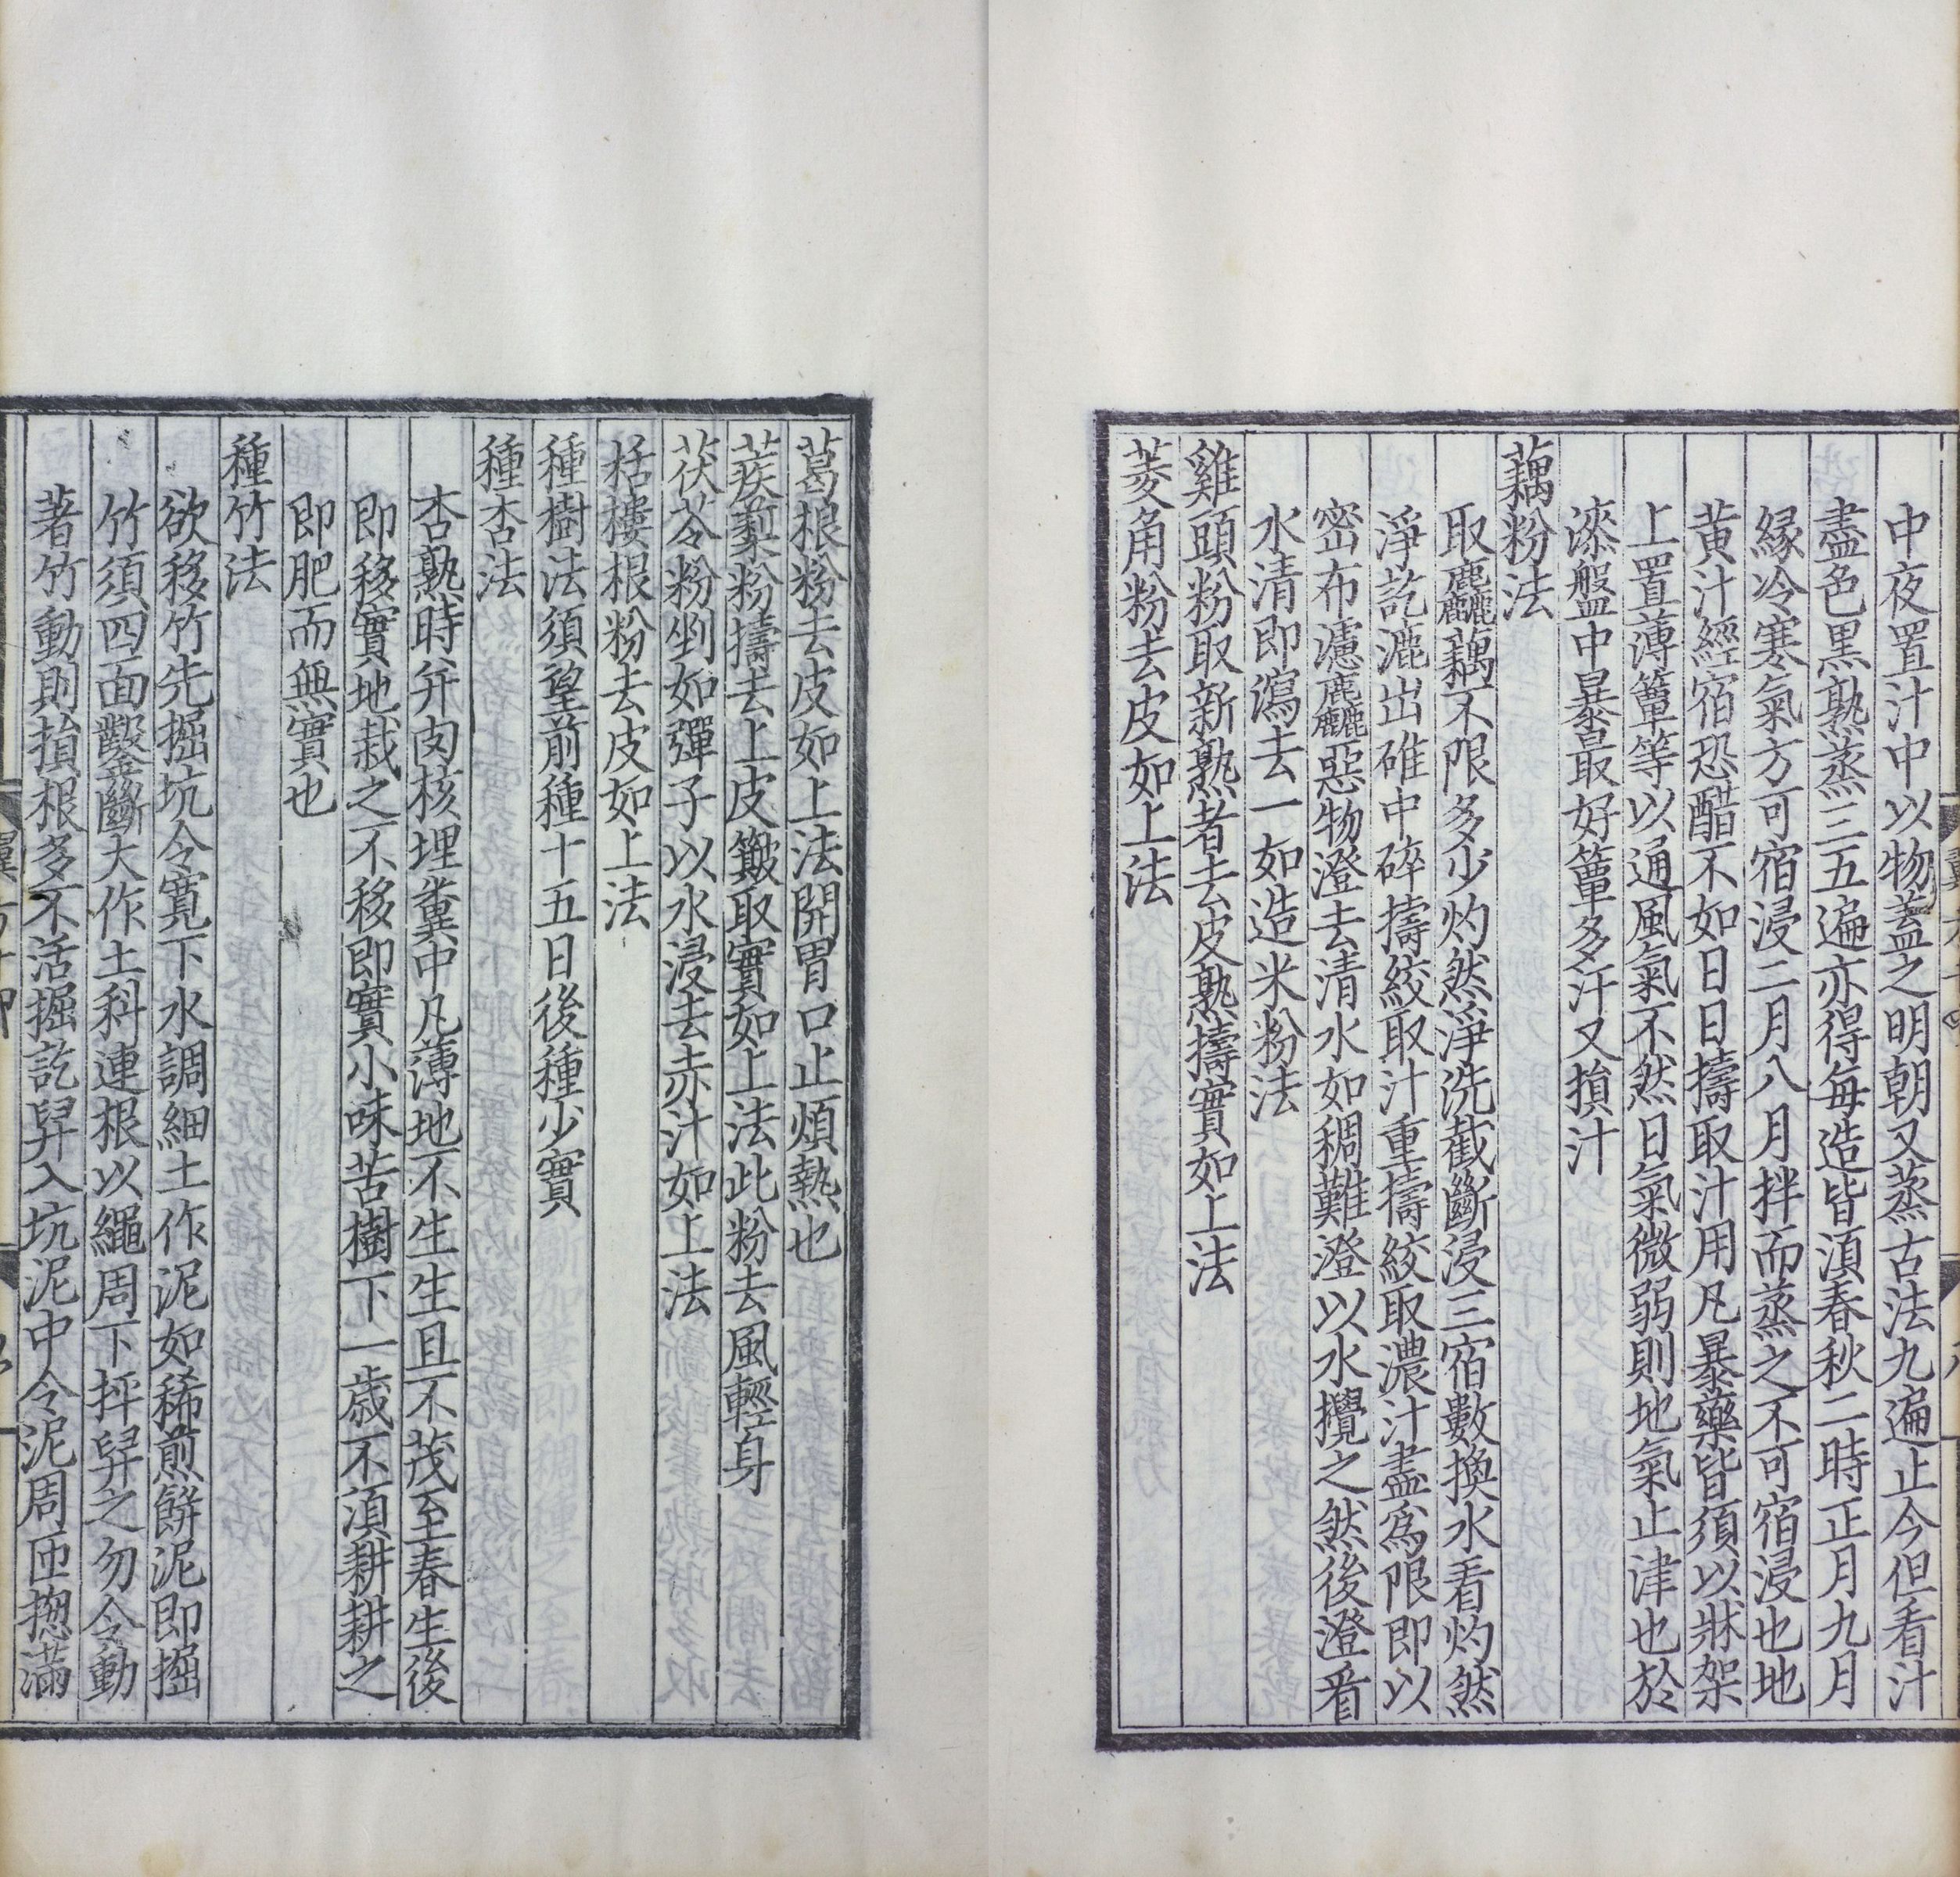 中夜置汁中以物蓋之明朝又蒸古法九遍止今但看汁
盡色黒熟蒸三五遍亦得每造皆湏春秋二時正月九月
縁冷寒氣方可宿浸二月八月拌而蒸之不可宿浸也地
黄汁經宿恐醋不如日日擣取汁用凡暴藥皆須以牀架
上置薄簟等以通風氣不然日氣微弱則地氣止津也於
漆盤中暴最好簟多汗又損汁
藕粉法
取麤藕不限多少灼然淨洗截斷浸三宿數換水看灼然
淨訖漉出碓中碎擣絞取汁重擣絞取濃汁盡爲限即以
密布濾麤惡物澄去清水如稠難澄以水攪之然後澄看
水清即瀉去一如造米粉法
雞頭粉取新熟者去皮熟擣實如上法
菱角粉去皮如上法
葛根粉去皮如上法開胃口止煩熱也
蒺䔧粉擣去上皮簸取實如上法此粉去風輕身
茯苓粉剉如彈子以水浸去赤汁如上法
栝樓根粉去皮如上法
種樹法須望前種十五日後種少實
種杏法
杏熟時并肉核埋糞中凡薄地不生生且不茂至春生後
即移實地栽之不移即實小味苦樹下一歳不湏耕耕之
即肥而無實也
種竹法
欲移竹先掘坑令寛下水調細土作泥如稀煎餅泥即掘
竹須四面鑿斷大作土科連根以繩周下抨舁之勿令動
著竹動則損根多不活掘訖舁入坑泥中令泥周匝揔滿